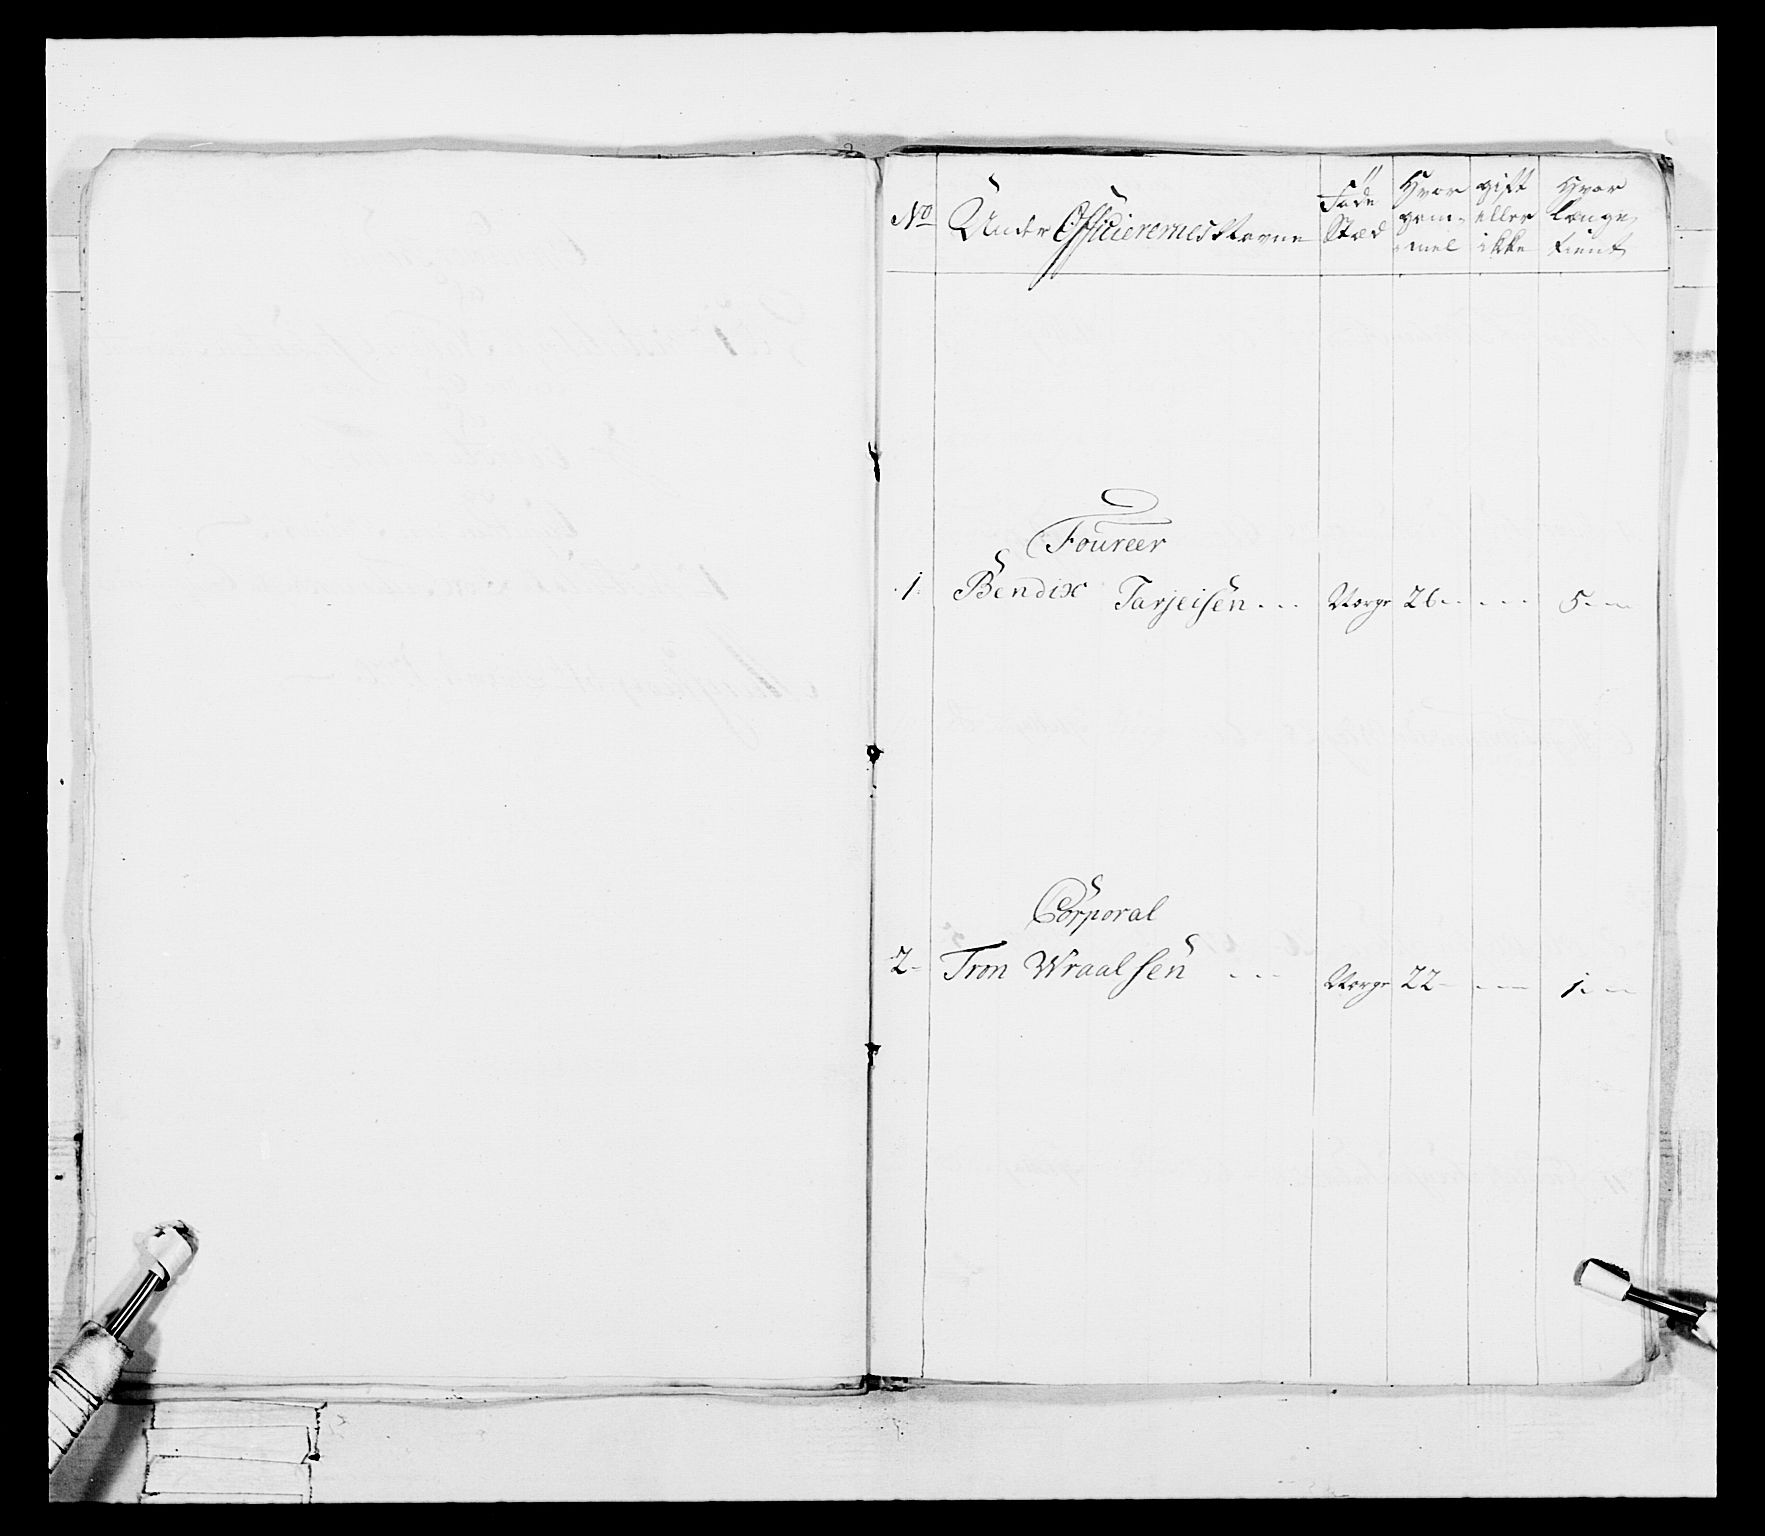 No Under Officierernes Navne Føde Stæd Hvor gam- mel gift eller ikke Hvor længe tient
Foureer
1. Bendix Tarjeisen Norge 26 5
Corporal
2 Tron Wraalsen Norge 22 1